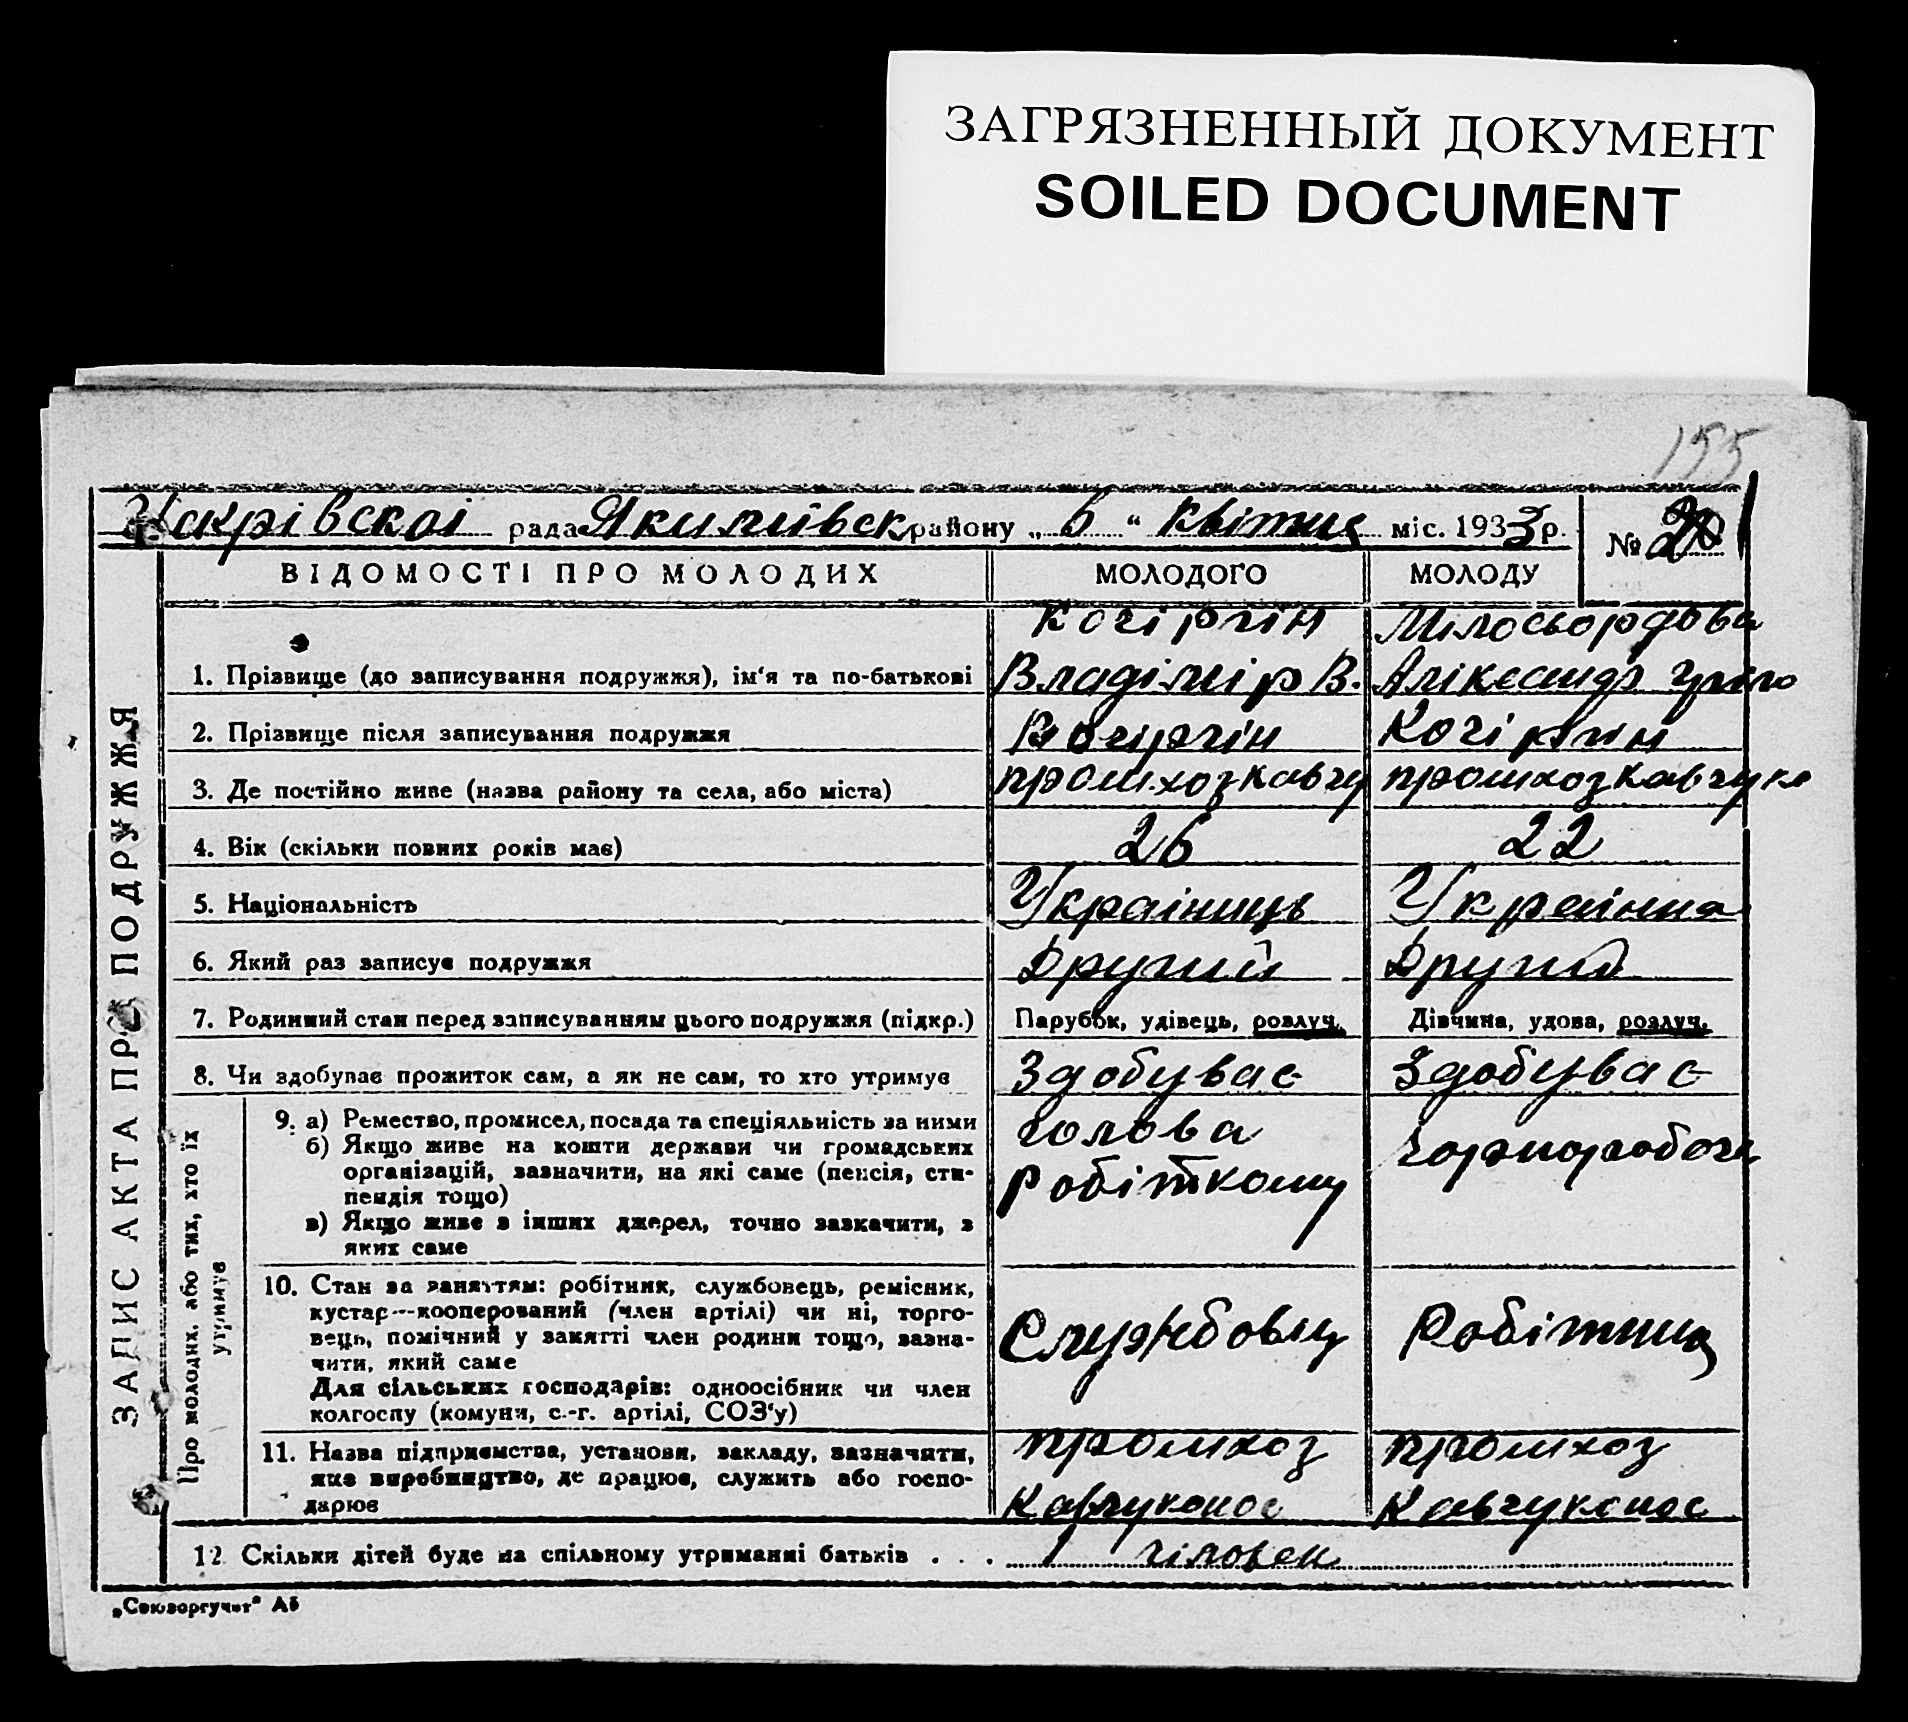 ЗАГРЯЗНЕННЫЙ ДОКУМЕНТ
SOILED DOCUMENT
155
рада Якимівск району „ 6 “ Квітня міс. 1933 р. № 20
ВІДОМОСТІ ПРО МОЛОДИХ МОЛОДОГО МОЛОДУ
Кочіргін Мілосьордова
1. Прізвище (до записування подружжя), ім‘я та по-батькові Владімір В.
2. Прізвище після записування подружжя Кочіргін
3. Де постійно живе (назва району та села, або міста) промхоз кавчу промхоз кавчуко
4. Вік (скільки повних років має) 26 22
5. Національність Украінець Украінка
6. Який раз записує подружжя Другий Другий
7. Родинний стан перед записуванням цього подружжя (підкр.) Парубок, удівець, розлуч. Дівчина, удова, розлуч.
8. Чи здобуває прожиток сам, а як не сам, то хто утримує Здобуває Здобуває
9. а) Ремество, промисел, посада та спеціяльність за ними голова
б) Якщо живе на кошти держави чи громадських чорноробоча
організацій, зазначити, на які саме (пенсія, сти- робіткому
пендія тощо)
в) Якщо живе з інших джерел, точно зазначити, з
яких саме
10. Стан за заняттям: робітник, службовець, ремісник,
кустар—кооперований (член артілі) чи ні, торго-
вець, помічний у занятті член родини тощо, зазна- Службовец Робітниця
чити, який саме
Для сільських господарів: одноосібник чи член
колгоспу (комуни, с.-г. артілі, СОЗ‘у)
11. Назва підприємства, установи, закладу, зазначити, промхоз промхоз
яке виробництво, де працює, служить або госпо-
дарює Кавчуконос Кавчуконос
12. Скільки дітей буде на спільному утриманні батьків . . . 1 чіловек
ЗАПИС АКТА ПРО ПОДРУЖЖЯ
Про молодих, або тих, хто їх
утримує
„Союзоргучет“ А5